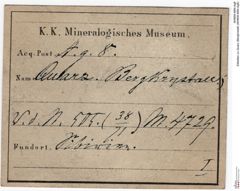 K. K. Mineralogisches Museum.
Acq. Post A. g. 8.
Name Quarz. Bergkrystall
V. d. N. 505. (38/11) M. 4729.
Fundort. Sibirien.
I